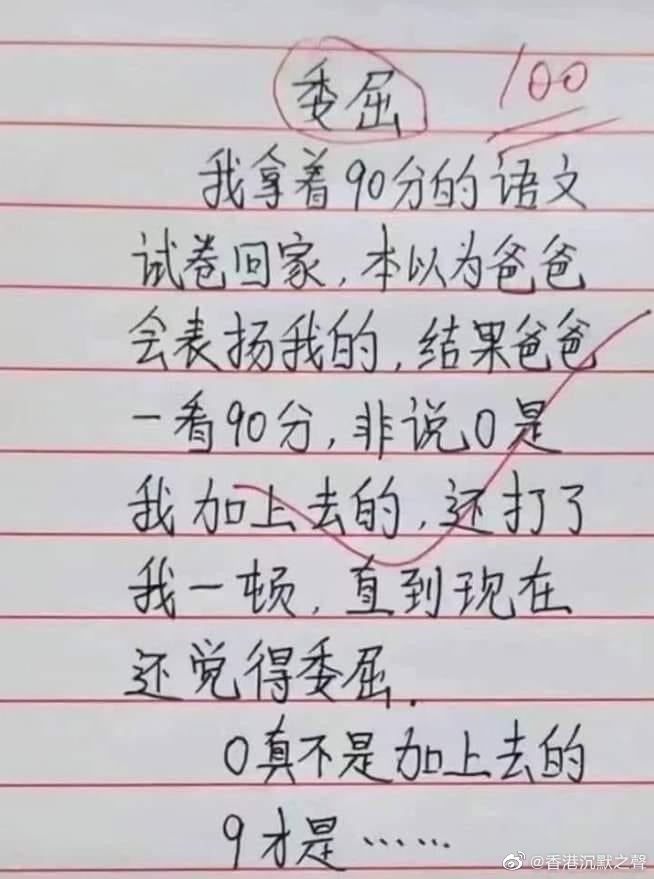 委屈 100
我拿着90分的语文
试卷回家,本以为爸爸
会表扬我的,结果爸爸
一看90分,非说0是
我加上去的,还打了
我一顿,直到现在
还觉得委屈.
0真不是加上去的
9才是……
@香港沉默之聲